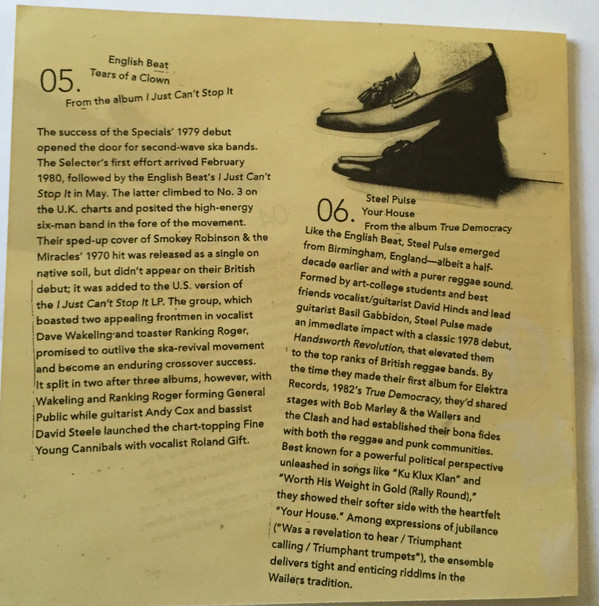 05.
English Beat
Tears of a Clown
From the album I Just Can't Stop It
The success of the Specials' 1979 debut
opened the door for second-wave ska bands.
The Selecter's first effort arrived February
1980, followed by the English Beat's I Just Can't
Stop It in May. The latter climbed to No. 3 on
the U.K. charts and posited the high-energy
six-man band in the fore of the movement.
Their sped-up cover of Smokey Robinson & the
Miracles' 1970 hit was released as a single on
native soil, but didn't appear on their British
debut; it was added to the U.S. version of
the I Just Can't Stop It LP. The group, which
boasted two appealing frontmen in vocalist
Dave Wakeling and toaster Ranking Roger,
promised to outlive the ska-revival movement
and become an enduring crossover success.
It split in two after three albums, however, with
Wakeling and Ranking Roger forming General
Public while guitarist Andy Cox and bassist
David Steele launched the chart-topping Fine
Young Cannibals with vocalist Roland Gift.
06.
Steel Pulse
Your House
From the album True Democracy
Like the English Beat, Steel Pulse emerged
from Birmingham, England—albeit a half-
decade earlier and with a purer reggae sound.
Formed by art-college students and best
friends vocalist/guitarist David Hinds and lead
guitarist Basil Gabbidon, Steel Pulse made
an immediate impact with a classic 1978 debut,
Handsworth Revolution, that elevated them
to the top ranks of British reggae bands. By
the time they made their first album for Elektra
Records, 1982's True Democracy, they'd shared
stages with Bob Marley & the Wailers and
the Clash and had established their bona fides
with both the reggae and punk communities.
Best known for a powerful political perspective
unleashed in songs like "Ku Klux Klan" and
"Worth His Weight in Gold (Rally Round),"
they showed their softer side with the heartfelt
"Your House." Among expressions of jubilance
("Was a revelation to hear / Triumphant
calling / Triumphant trumpets"), the ensemble
delivers tight and enticing riddims in the
Wailers tradition.